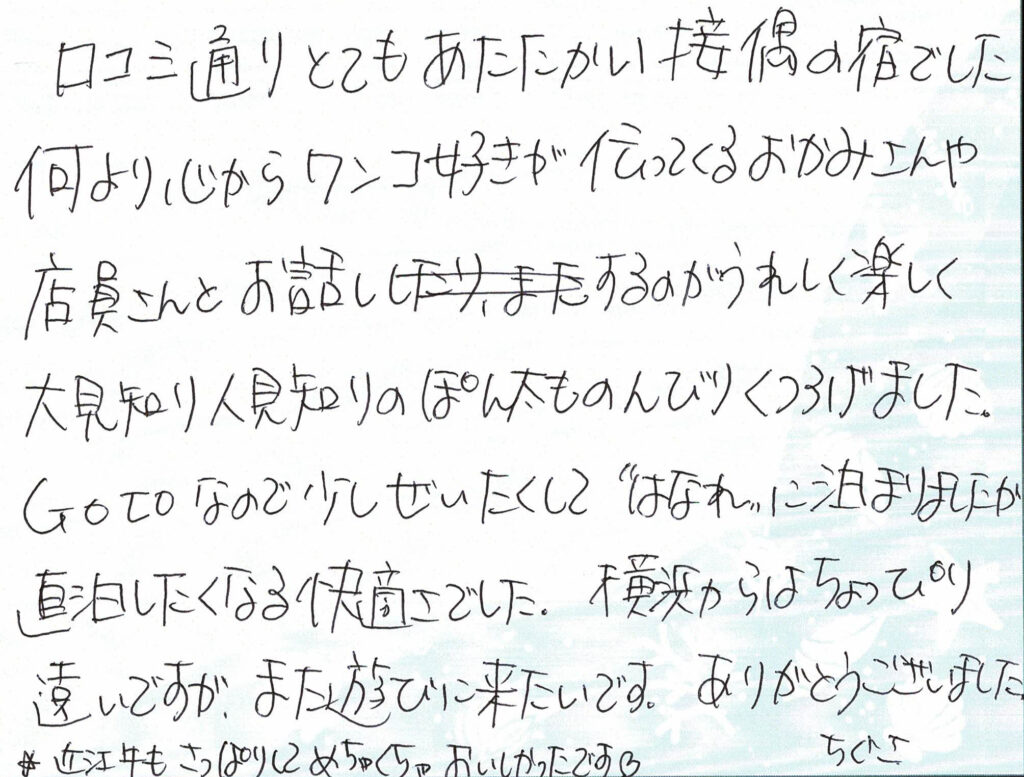 口コミ通りとてもあたたかい接偶の宿でした
何より心からワンコ好きが伝ってくるおかみさんや
店員さんとお話ししたり、またするのがうれしく楽しく
犬見知り人見知りのぽん太ものんびりくつろげました。
GOTOなので少しぜいたくして“はなれ”に泊まりましたが
連泊したくなる快適さでした。横浜からはちょっぴり
遠いですが、また遊びに来たいです。ありがとうございました
* 近江牛もさっぱりしてめちゃくちゃおいしかったです